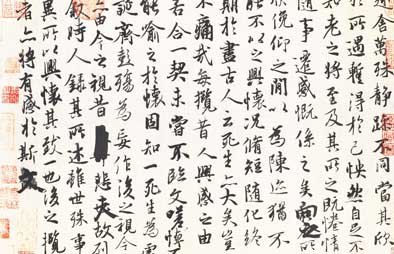 舍萬殊靜躁不同當其欣
於所遇蹔得於己怏然自足不
知老之將至及其所之既惓情
隨事遷感慨係之矣向之所
欣俛仰之閒以為陳迹猶不
能不以之興懷況脩短隨化終
期於盡古人云死生亦大矣豈
不痛哉每攬昔人興感之由
若合一契未嘗不臨文嗟悼
能喻之於懷固知一死生為虛
誕齊彭殤為妄作後之視今
亦由今之視昔悲夫故列
敘時人錄其所述雖世殊事
異所以興懷其致一也後之攬
者亦將有感於斯文